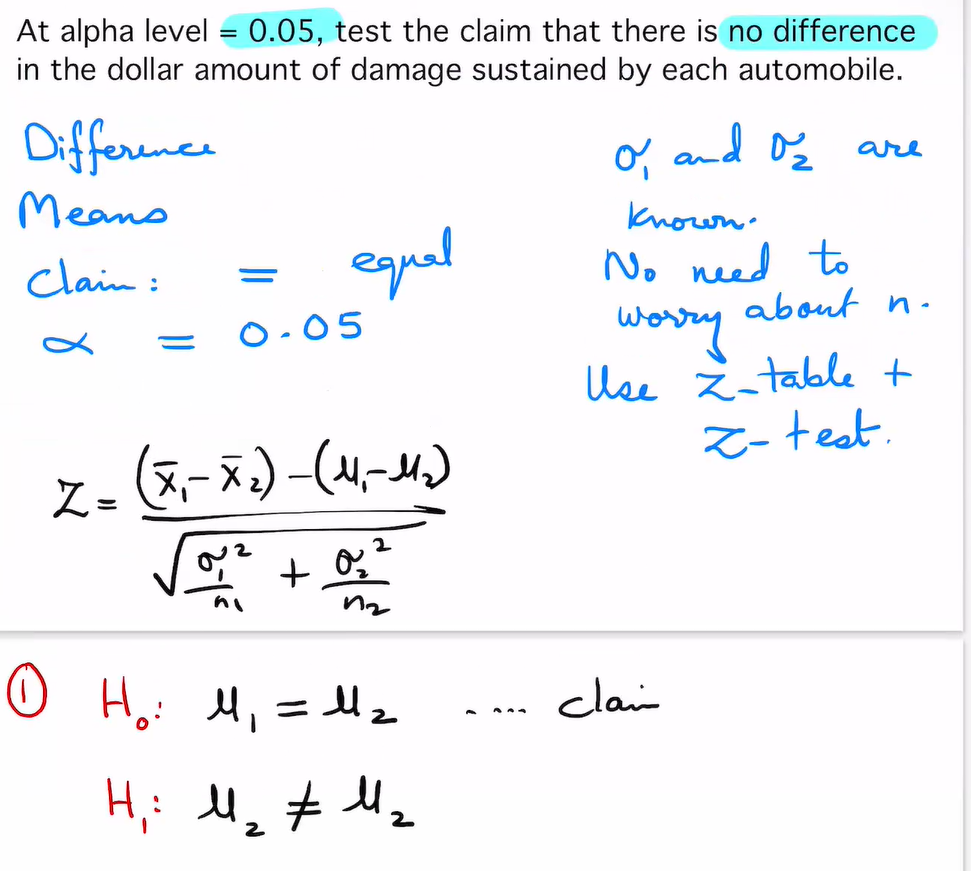 At alpha level = 0.05, test the claim that there is no difference
in the dollar amount of damage sustained by each automobile.
Difference
Means
Claim : = equal
α = 0.05
σ₁ and σ₂ are
known.
No need to
worry about n.
Use z-table +
z-test.
Z = ((x̄₁ - x̄₂) - (μ₁ - μ₂)) / √(σ₁²/n₁ + σ₂²/n₂)
① H₀: μ₁ = μ₂ .... claim
H₁: μ₂ ≠ μ₂